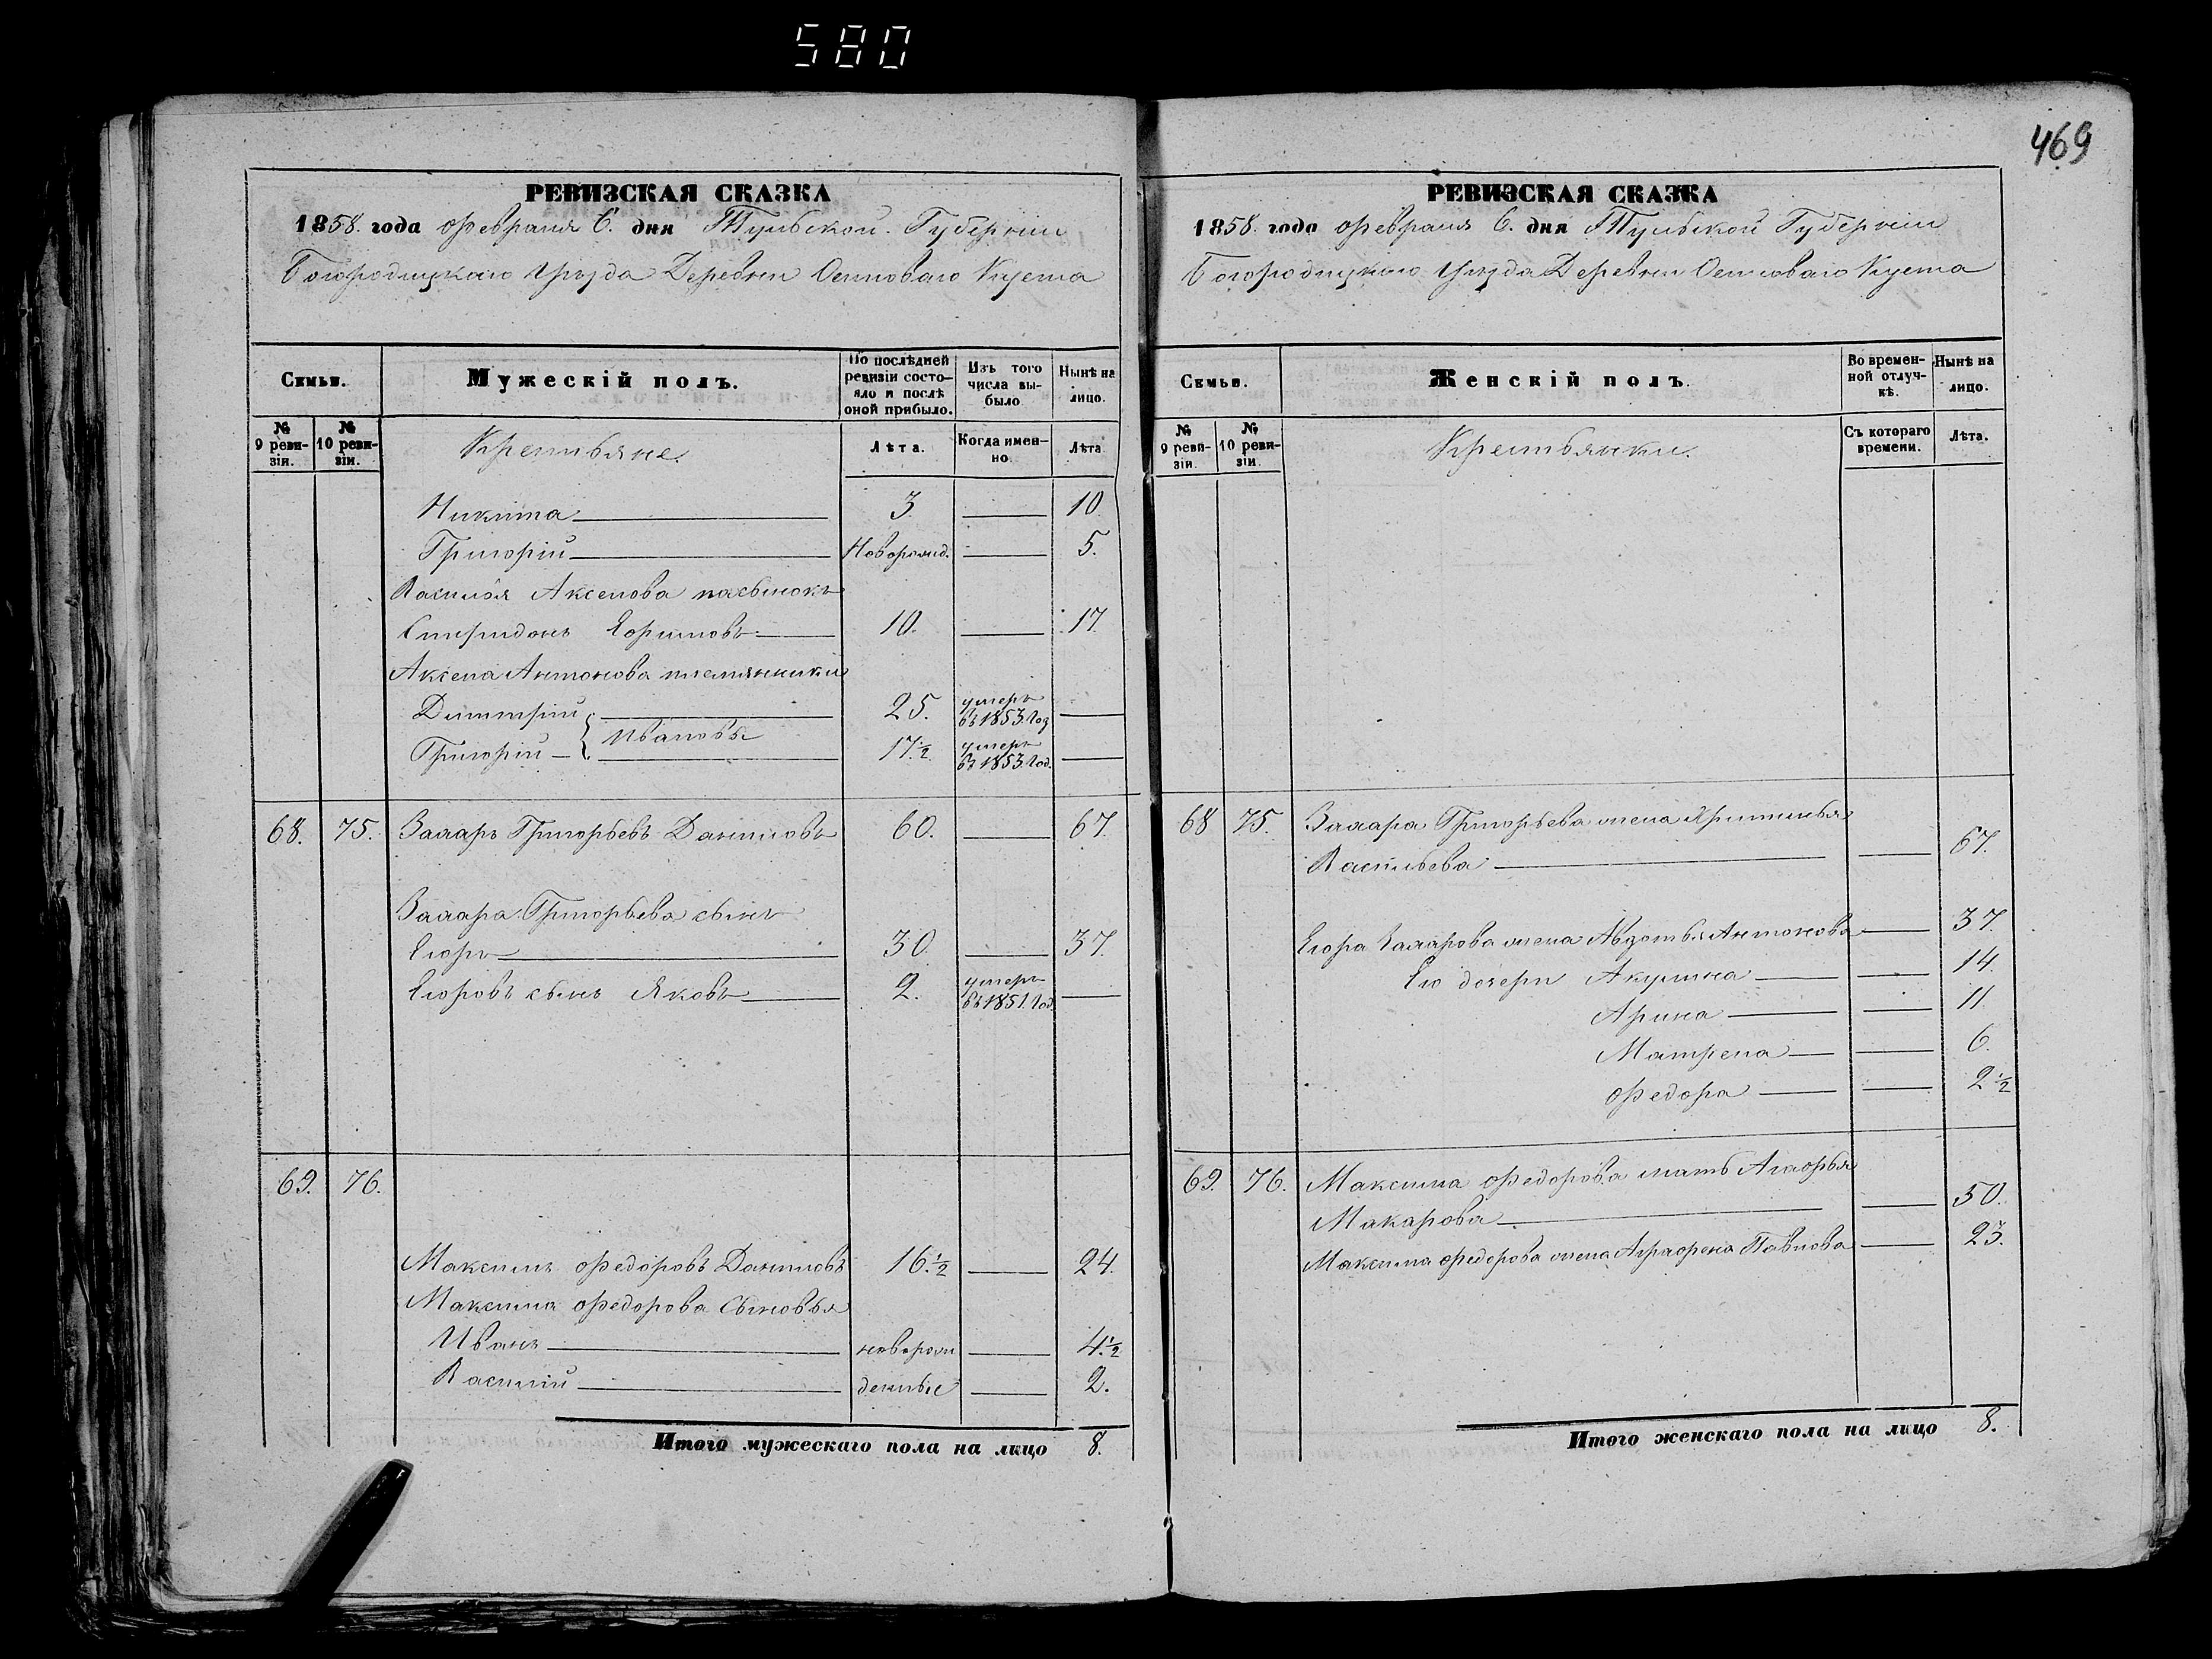 580
469
РЕВИЗСКАЯ СКАЗКА
1858. года Февраля 6. дня Тульской Губерніи
Богородицкаго Уѣзда Деревни Осиноваго Куста
Семьи.
Мужескій полъ.
По послѣдней ревизіи состояло и послѣ оной прибыло.
Изъ того числа выбыло
Нынѣ на лицо.
№ 9 ревизіи.
№ 10 ревизіи.
Крестьяне.
Лѣта.
Когда именно
Лѣта
Никита 3 10
Григорій Новорожд. 5.
Василья Аксенова пасынокъ
Спиридонъ 10. 17
Аксена Антонова племянники
Дмитрій 25. умеръ въ 1853. год
Ивановы
Григорій 17 1/2 умеръ въ 1853. год.
68. 75. Захаръ Григорьевъ Даниловъ 60. 67.
Захара Григорьева сынъ
Егоръ 30. 37.
Егоровъ сынъ Яковъ 2. умеръ въ 1851. год
69. 76.
Максимъ Федоровъ Даниловъ 16. 1/2 24.
Максима Федорова сыновья
Иванъ новорож 4. 1/2
Василій денные 2.
Итого мужескаго пола на лицо 8.
РЕВИЗСКАЯ СКАЗКА
1858. года Февраля 6. дня Тульской Губерніи
Богородицкаго Уѣзда Деревни Осиноваго Куста
Семьи.
Женскій полъ.
Во временной отлучкѣ.
Нынѣ на лицо.
№ 9 ревизіи.
№ 10 ревизіи.
Крестьянки.
Съ котораго времени.
Лѣта.
68 75. Захара Григорьева жена
Васильева 67.
Егора Захарова жена Авдотья Антонова 37.
Его дочери Акулина 14.
Арина 11.
Матрена 6.
Федора 2 1/2
69. 76. Максима Федорова мать Агафья
Макарова 50.
Максима Федорова жена Аграфена Павлова 23.
Итого женскаго пола на лицо 8.